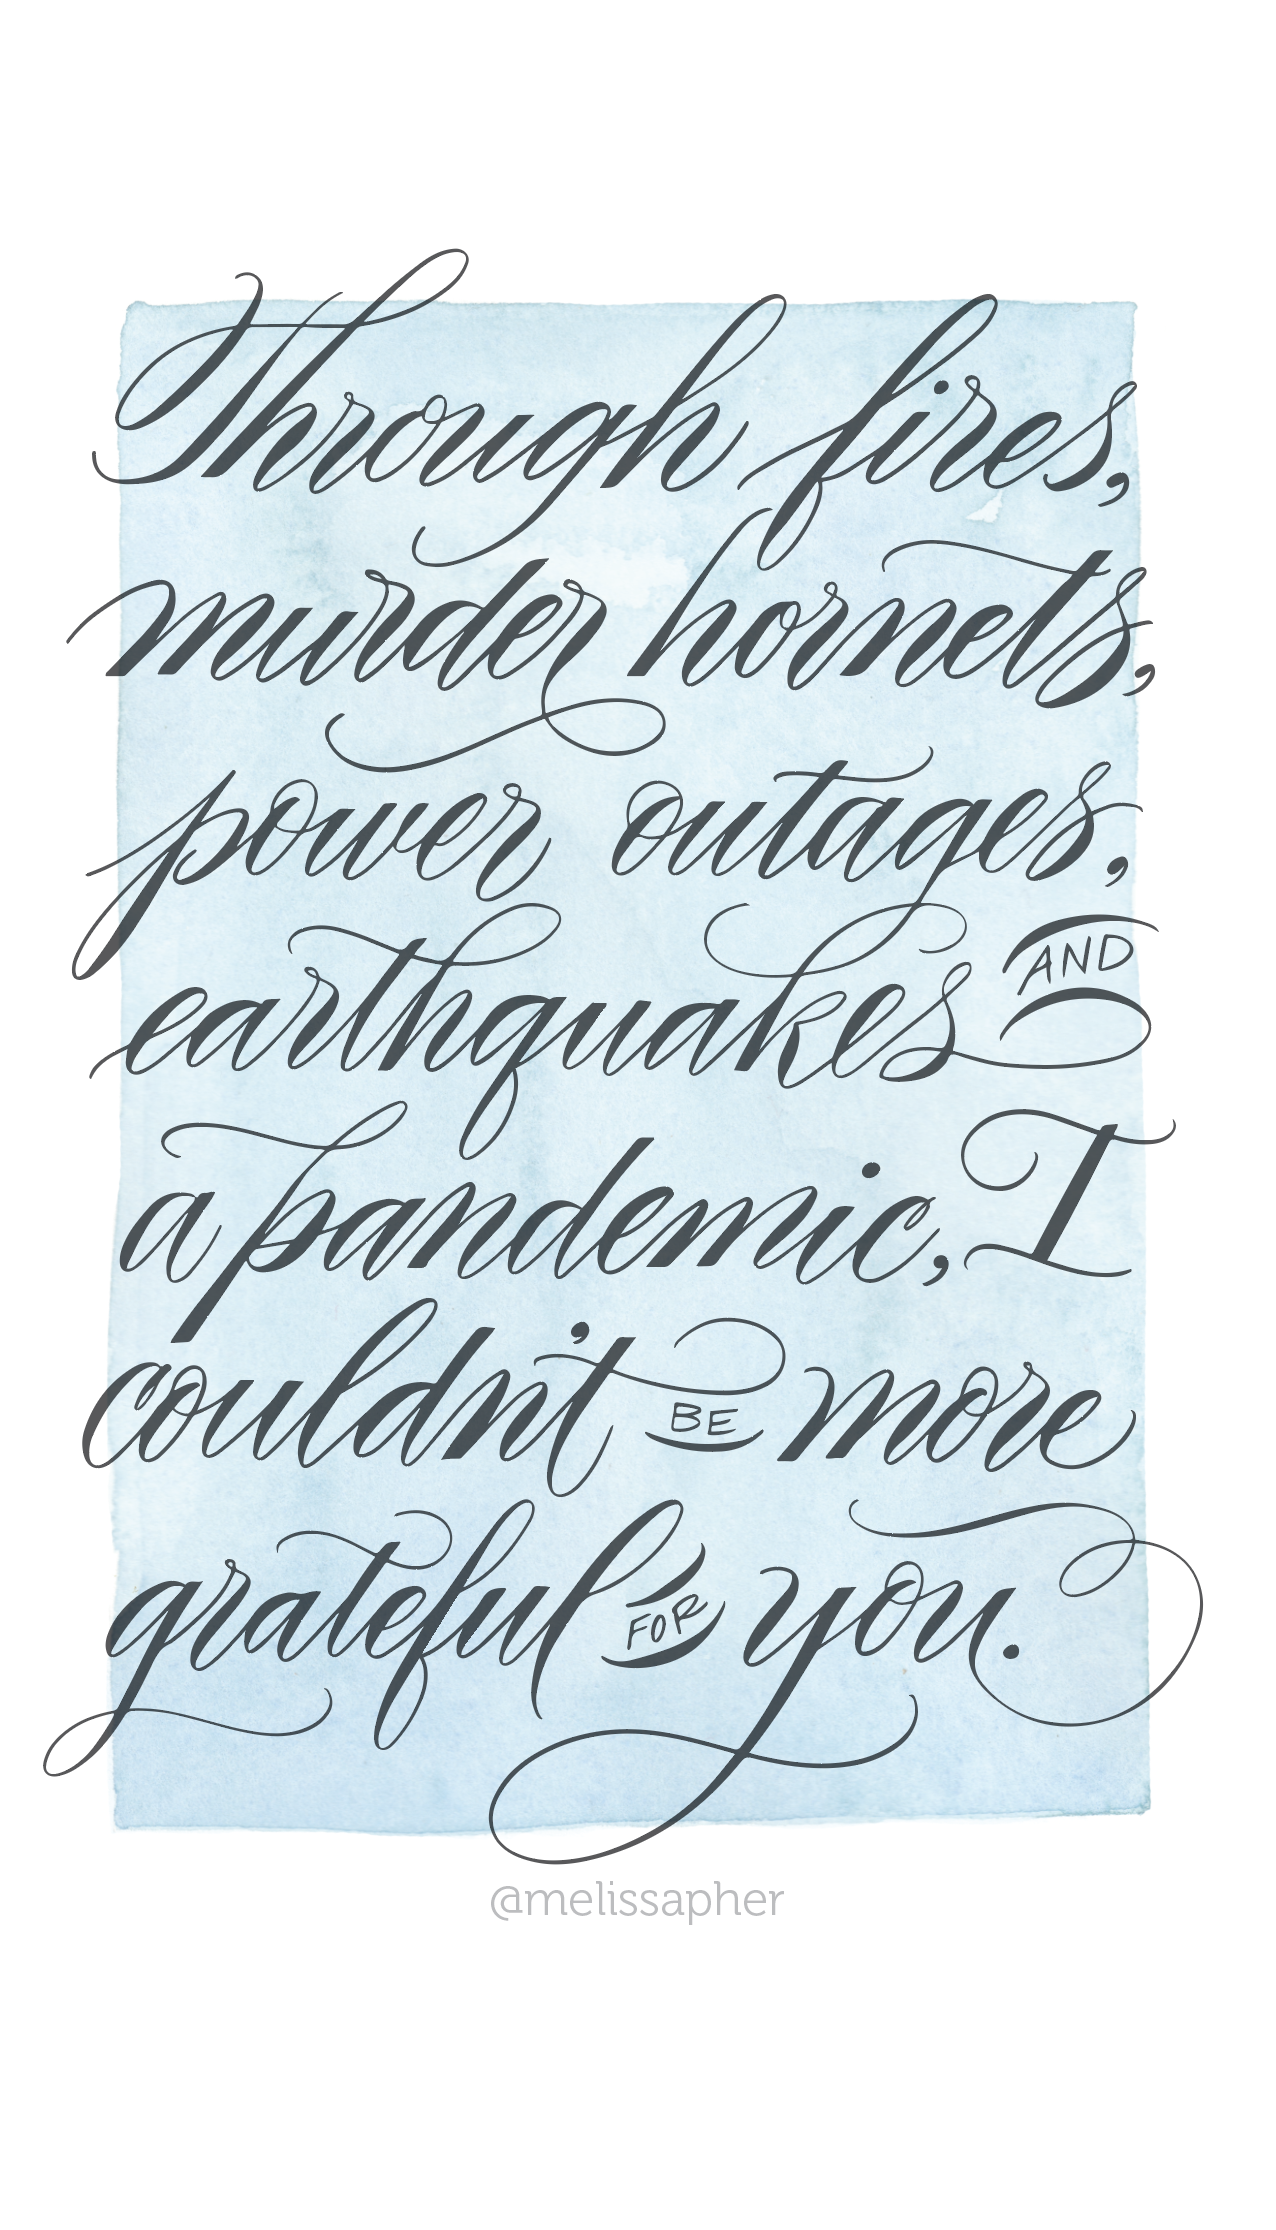 Through fires,
murder hornets,
power outages,
earthquakes AND
a pandemic, I
couldn't BE more
grateful FOR you.
@melissapher